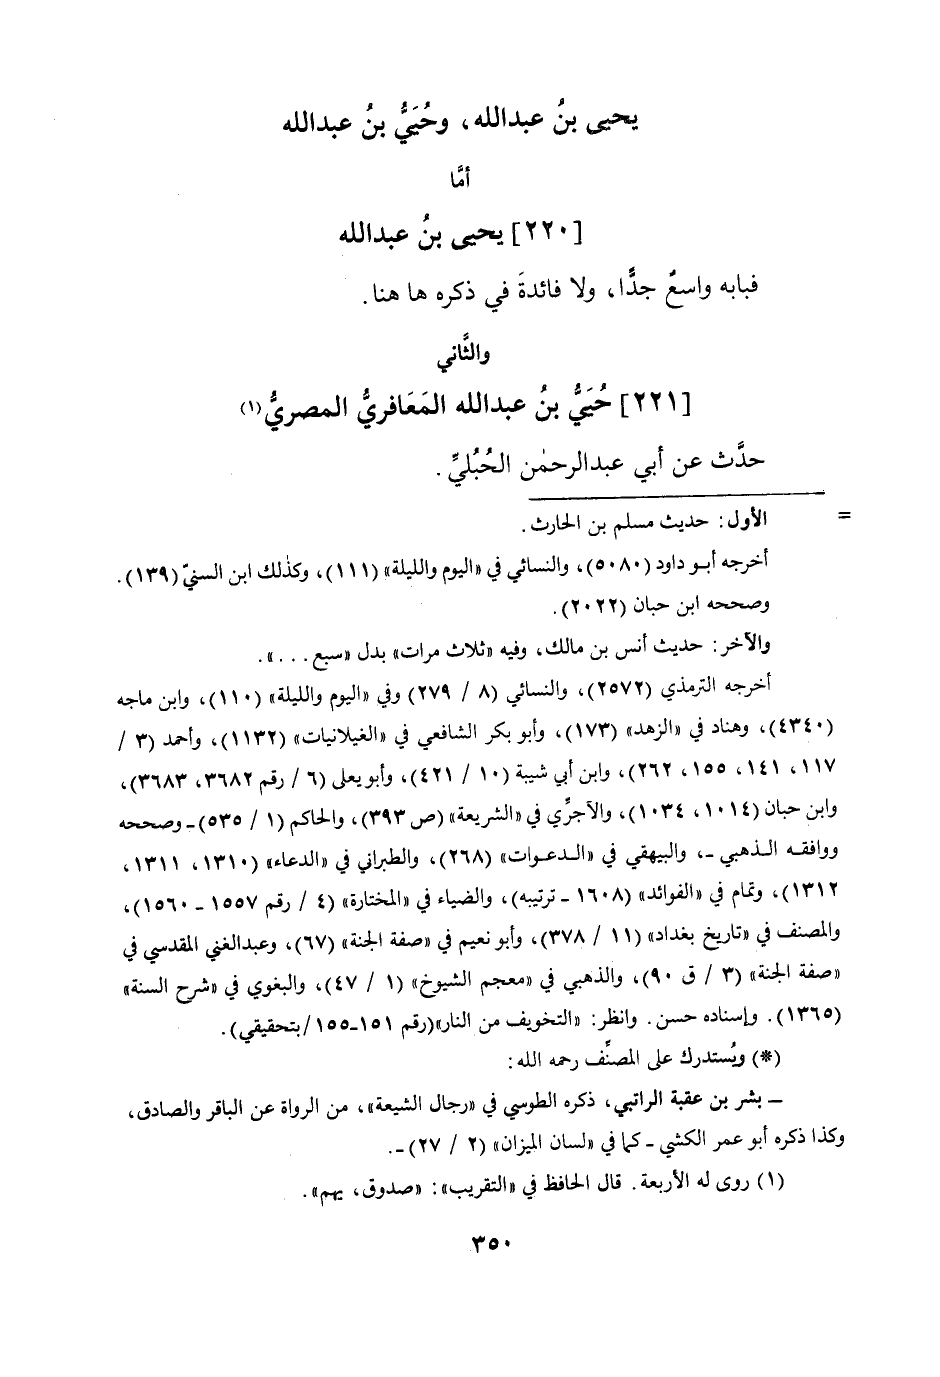 يحيى بنُ عبدالله، وحُيَيُّ بنُ عبدالله
أمَّا
[٢٢٠] يحيى بنُ عبدالله
فبابه واسعٌ جدًّا، ولا فائدةَ في ذكره ها هنا.
والثَّاني
[٢٢١] حُيَيُّ بنُ عبدالله المَعَافريُّ المصريُّ(١)
حدَّث عن أبي عبدالرحمٰن الحُبُليِّ.
= الأول: حديث مسلم بن الحارث.
أخرجه أبو داود (٥٠٨٠)، والنسائي في «اليوم والليلة» (١١١)، وكذٰلك ابن السنيّ (١٣٩).
وصححه ابن حبان (٢٠٢٢).
والآخر: حديث أنس بن مالك، وفيه «ثلاث مرات» بدل «سبع...».
أخرجه الترمذي (٢٥٧٢)، والنسائي (٨ / ٢٧٩) وفي «اليوم والليلة» (١١٠)، وابن ماجه
(٤٣٤٠)، وهناد في «الزهد» (١٧٣)، وأبو بكر الشافعي في «الغيلانيات» (١١٣٢)، وأحمد (٣ /
١١٧، ١٤١، ١٥٥، ٢٦٢)، وابن أبي شيبة (١٠ / ٤٢١)، وأبو يعلى (٦ / رقم ٣٦٨٢، ٣٦٨٣)،
وابن حبان (١٠١٤، ١٠٣٤)، والآجرِّي في «الشريعة» (ص ٣٩٣)، والحاكم (١ / ٥٣٥) ـ وصححه
ووافقه الذهبي ـ، والبيهقي في «الدعوات» (٢٦٨)، والطبراني في «الدعاء» (١٣١٠، ١٣١١،
١٣١٢)، وتمام في «الفوائد» (١٦٠٨ ـ ترتيبه)، والضياء في «المختارة» (٤ / رقم ١٥٥٧ ـ ١٥٦٠)،
والمصنف في «تاريخ بغداد» (١١ / ٣٧٨)، وأبو نعيم في «صفة الجنة» (٦٧)، وعبدالغني المقدسي في
«صفة الجنة» (٣ / ق ٩٠)، والذهبي في «معجم الشيوخ» (١ / ٤٧)، والبغوي في «شرح السنة»
(١٣٦٥). وإسناده حسن. وانظر: «التخويف من النار»(رقم ١٥١-١٥٥/بتحقيقي).
(*) ويُستدرك على المصنِّف رحمه الله:
ـ بشر بن عقبة الراتبي، ذكره الطوسي في «رجال الشيعة»، من الرواة عن الباقر والصادق،
وكذا ذكره أبو عمر الكشي ـ كما في «لسان الميزان» (٢ / ٢٧) ـ.
(١) روى له الأربعة. قال الحافظ في «التقريب»: «صدوق، يهم».
٣٥٠